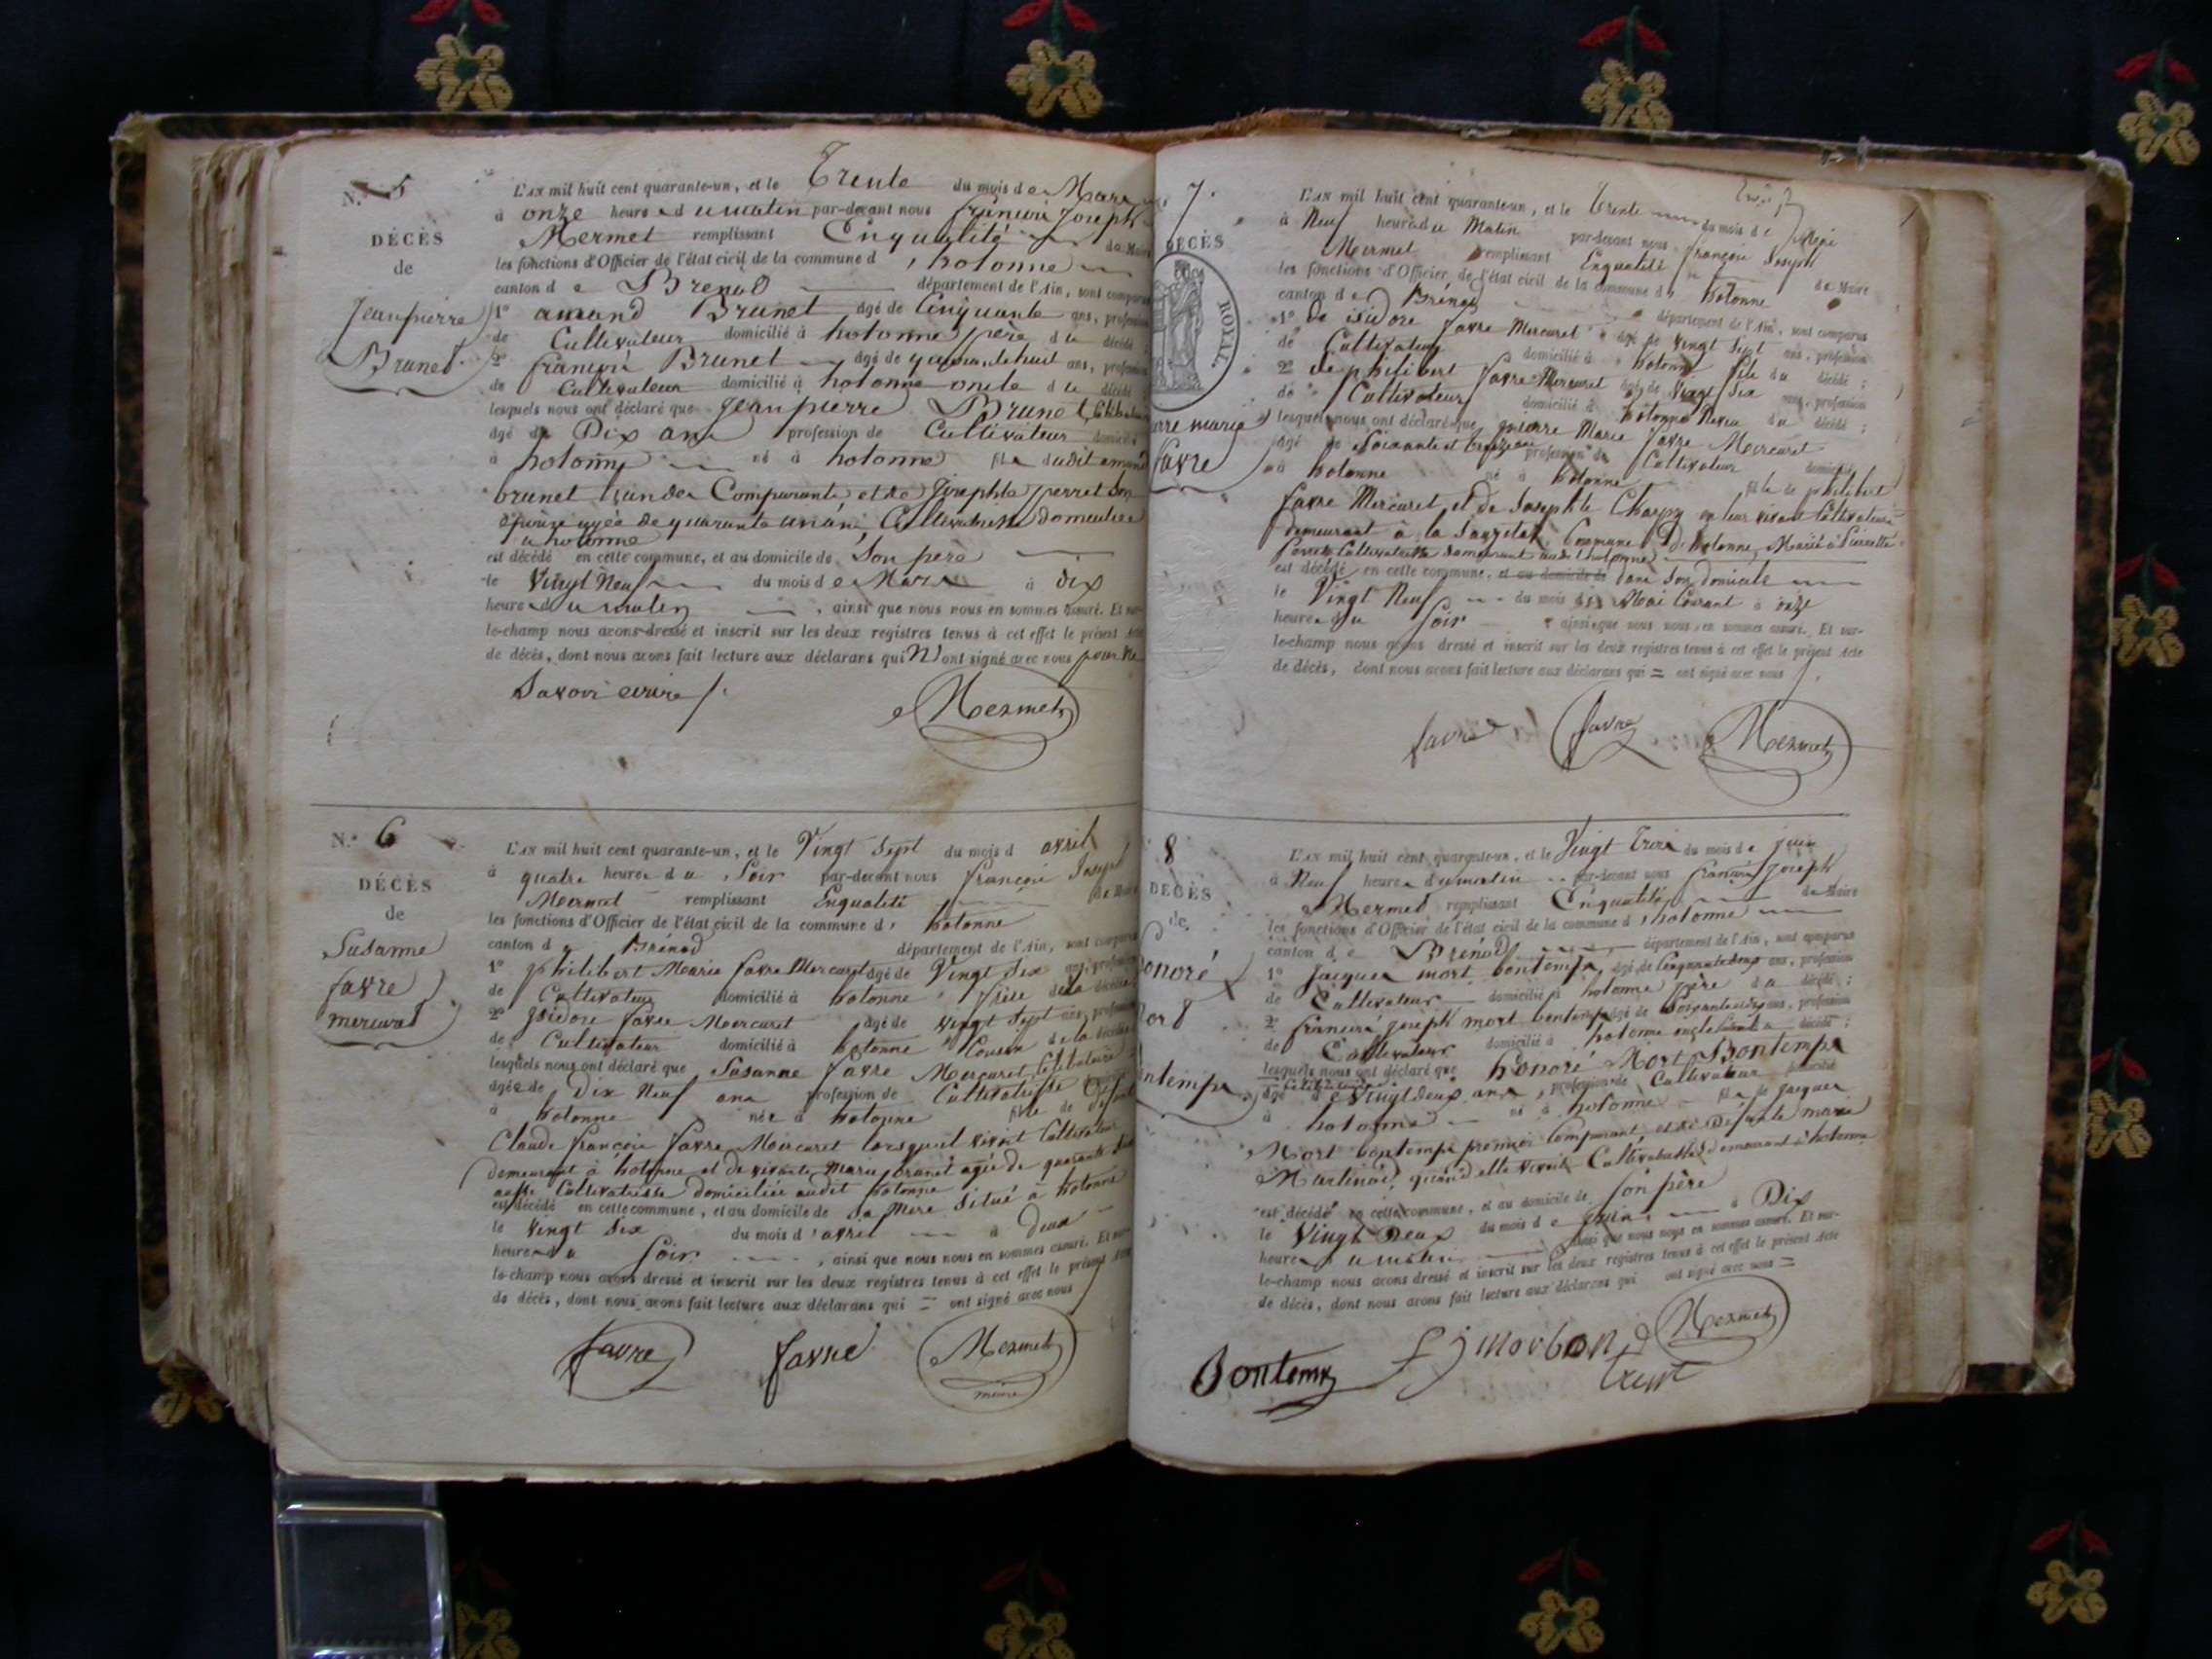 N.° 5
DÉCÈS
de
Jeanpierre
Brunet
L'AN mil huit cent quarante-un, et le Trente du mois de Mars
à onze heures du matin par-devant nous françois Joseph
Mermet remplissant Enqualité de Maire
les fonctions d'Officier de l'état civil de la commune d'hotonne
canton de Brenod département de l'Ain, sont comparus
1° amand Brunet âgé de Cinquante ans, profession
de Cultivateur domicilié à hotonne père du décédé
2° françois Brunet âgé de quarantehuit ans, profession
de Cultivateur domicilié à hotonne oncle du décédé
lesquels nous ont déclaré que Jeanpierre Brunet
âgé de Dix ans profession de Cultivateur domicilié
à hotonne né à hotonne fils dudit amand
brunet lun des Comparants et de Josephte perret son
épouse agée de quarante un ans, Cultivatrisse domiciliée
a hotonne
est décédé en cette commune, et au domicile de Son père
le Vingt Neuf du mois de Mars à dix
heures du matin, ainsi que nous nous en sommes assuré. Et sur-
le-champ nous avons dressé et inscrit sur les deux registres tenus à cet effet le présent Acte
de décès, dont nous avons fait lecture aux déclarans qui N'ont signé avec nous pour Ne
Savoir ecrire
Mermet
N.° 6
DÉCÈS
de
Susanne
favre
mercuret
L'AN mil huit cent quarante-un, et le Vingt Sept du mois d avril
à quatre heures du Soir par-devant nous françois Joseph
Mermet remplissant Enqualité de Maire
les fonctions d'Officier de l'état civil de la commune d' hotonne
canton de Brénod département de l'Ain, sont comparus
1° philibert Marie favre Mercuret âgé de Vingt Six ans, profession
de Cultivateur domicilié à hotonne frère de la décédée
2° Isidore favre Mercuret âgé de vingt Sept ans, profession
de Cultivateur domicilié à hotonne Cousin de la décédée
lesquels nous ont déclaré que Susanne favre Mercuret, Célibataire
âgée de Dix Neuf ans profession de Cultivatrisse
à hotonne née à hotonne fille de
Claude françois favre Mercuret lorsqu'il vivoit Cultivateur
demeurant à hotonne et de vivante Marie brunet agée de quarante
aussi Cultivatrisse domiciliée audit hotonne
est décédé en cette commune, et au domicile de Sa Mere situé à hotonne
le Vingt Six du mois d'avril à deux
heures du Soir, ainsi que nous nous en sommes assuré. Et sur-
le-champ nous avons dressé et inscrit sur les deux registres tenus à cet effet le présent Acte
de décès, dont nous avons fait lecture aux déclarans qui = ont signé avec nous
favre favre Mermet
maire
7.
DÉCÈS
ROYAL.
erre marie
favre
L'AN mil huit cent quarante-un, et le Trente du mois de Mai
à Neuf heures du Matin par-devant nous françois Joseph
Mermet remplissant Enqualité de Maire
les fonctions d'Officier de l'état civil de la commune d' hotonne
canton de Brénod département de l'Ain, sont comparus
1° de isidore favre Mercuret âgé de vingt Sept ans, profession
de Cultivateur domicilié à hotonne fils du décédé;
2° de philibert favre Mercuret âgé de Vingt Six ans, profession
de Cultivateur domicilié à hotonne Neveu du décédé;
lesquels nous ont déclaré que pierre Marie favre Mercuret
âgé de Soixante et profession de Cultivateur domicilié
à hotonne né à hotonne fils de philibert
favre Mercuret, et de Josephte Charpy en leur vivant Cultivateurs
demeurant à la Commune d'hotonne, Marié à pierrette
Cultivatrisse demeurant audit hotonne
est décédé en cette commune, et au domicile de dans Son domicile
le Vingt Neuf du mois de Mai Courant à onze
heures du Soir ainsi que nous nous en sommes assuré. Et sur-
le-champ nous avons dressé et inscrit sur les deux registres tenus à cet effet le présent Acte
de décès, dont nous avons fait lecture aux déclarans qui = ont signé avec nous
favre favre Mermet
8
DÉCÈS
de
onoré
or 8
ntemps
L'AN mil huit cent quarante-un, et le Vingt Trois du mois de juin
à Neuf heures du matin par-devant nous françois Joseph
Mermet remplissant Enqualité de Maire
les fonctions d'Officier de l'état civil de la commune d'hotonne
canton de Brénod département de l'Ain, sont comparus
1° Jacques mort bontemps, âgé de Cinquantedeux ans, profession
de Cultivateur domicilié à hotonne père du décédé;
2° francois joseph mort bontemps âgé de ans, profession
de Cultivateur domicilié à hotonne oncle du décédé;
lesquels nous ont déclaré que honoré Mort Bontemps
Célibataire
âgé de Vingtdeux ans, profession de Cultivateur domicilié
à hotonne né à hotonne fils de Jacques
Mort bontemps premier Comparant, et de Défunte marie
Martinod, quand elle vivoit Cultivatrisse demeurant à hotonne
est décédé en cette commune, et au domicile de Son père
le Vingt Deux du mois de juin à Dix
heures du matin ainsi que nous nous en sommes assuré. Et sur-
le-champ nous avons dressé et inscrit sur les deux registres tenus à cet effet le présent Acte
de décès, dont nous avons fait lecture aux déclarans qui ont signé avec nous =
Bontemps fj morbon Mermet